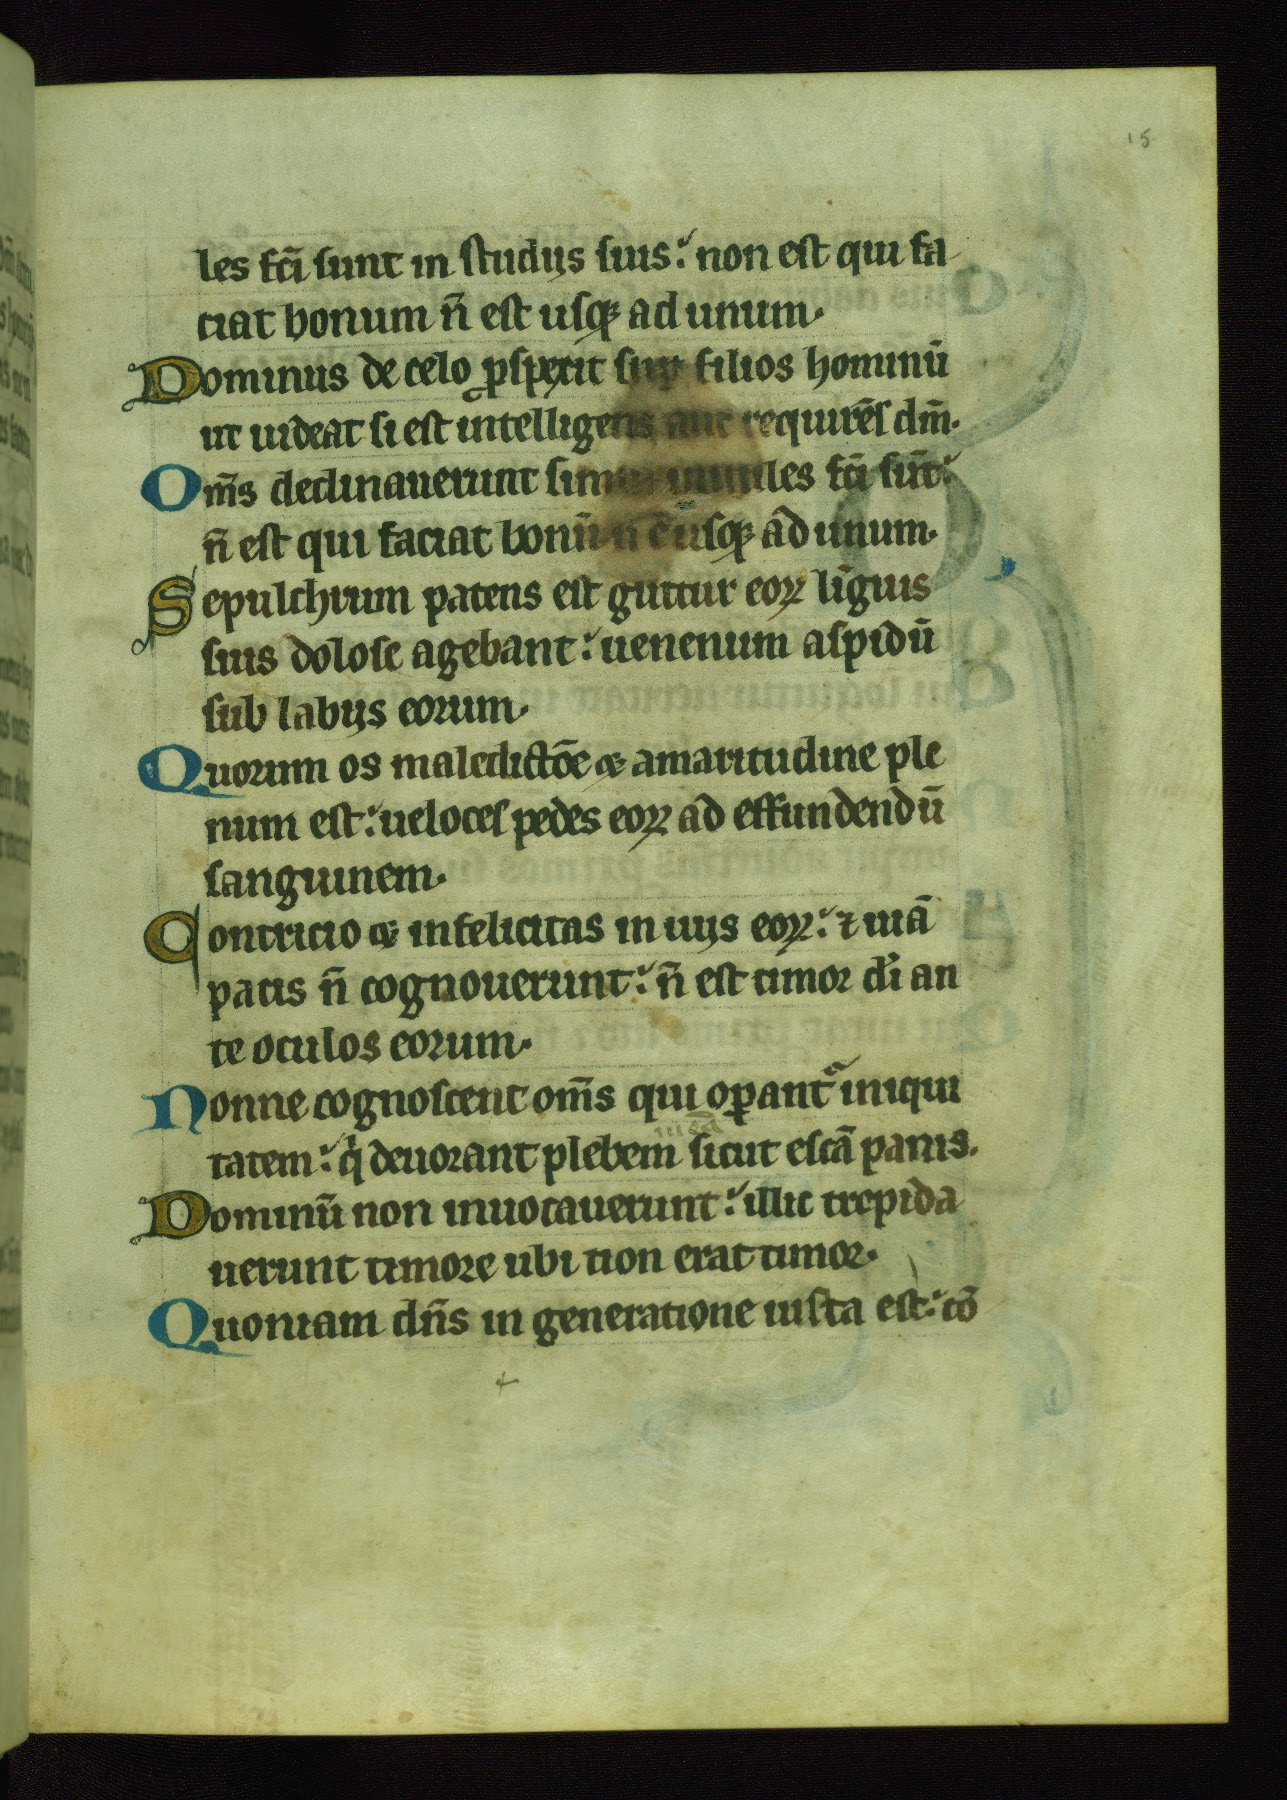 15
les fc̄i sunt in studijs suis: non est qui fa
ciat bonum n̄ est usq; ad unum.
Dominus de celo ꝓspexit sup̄ filios hominū
ut uideat si est intelligens aut requirēs dm̄.
Om̄s declinauerunt simul inutiles fc̄i sūt:
n̄ est qui faciat bonū n̄ ē usq; ad unum.
Sepulchrum patens est guttur eoꝝ linguis
suis dolose agebant: uenenum aspidū
sub labijs eorum.
Quorum os maledictōe & amaritudine ple
num est: ueloces pedes eoꝝ ad effundendū
sanguinem.
Contricio & infelicitas in uijs eoꝝ: ⁊ uiā
pacis n̄ cognouerunt: n̄ est timor di̅ an
te oculos eorum.
Nonne cognoscent om̄s qui oꝑantᷣ iniqui
tatem: qⁱ deuorant plebem sicut escā panis.
Dominū non inuocauerunt: illic trepida
uerunt timore ubi non erat timor.
Quoniam dn̄s in generatione iusta est: cō